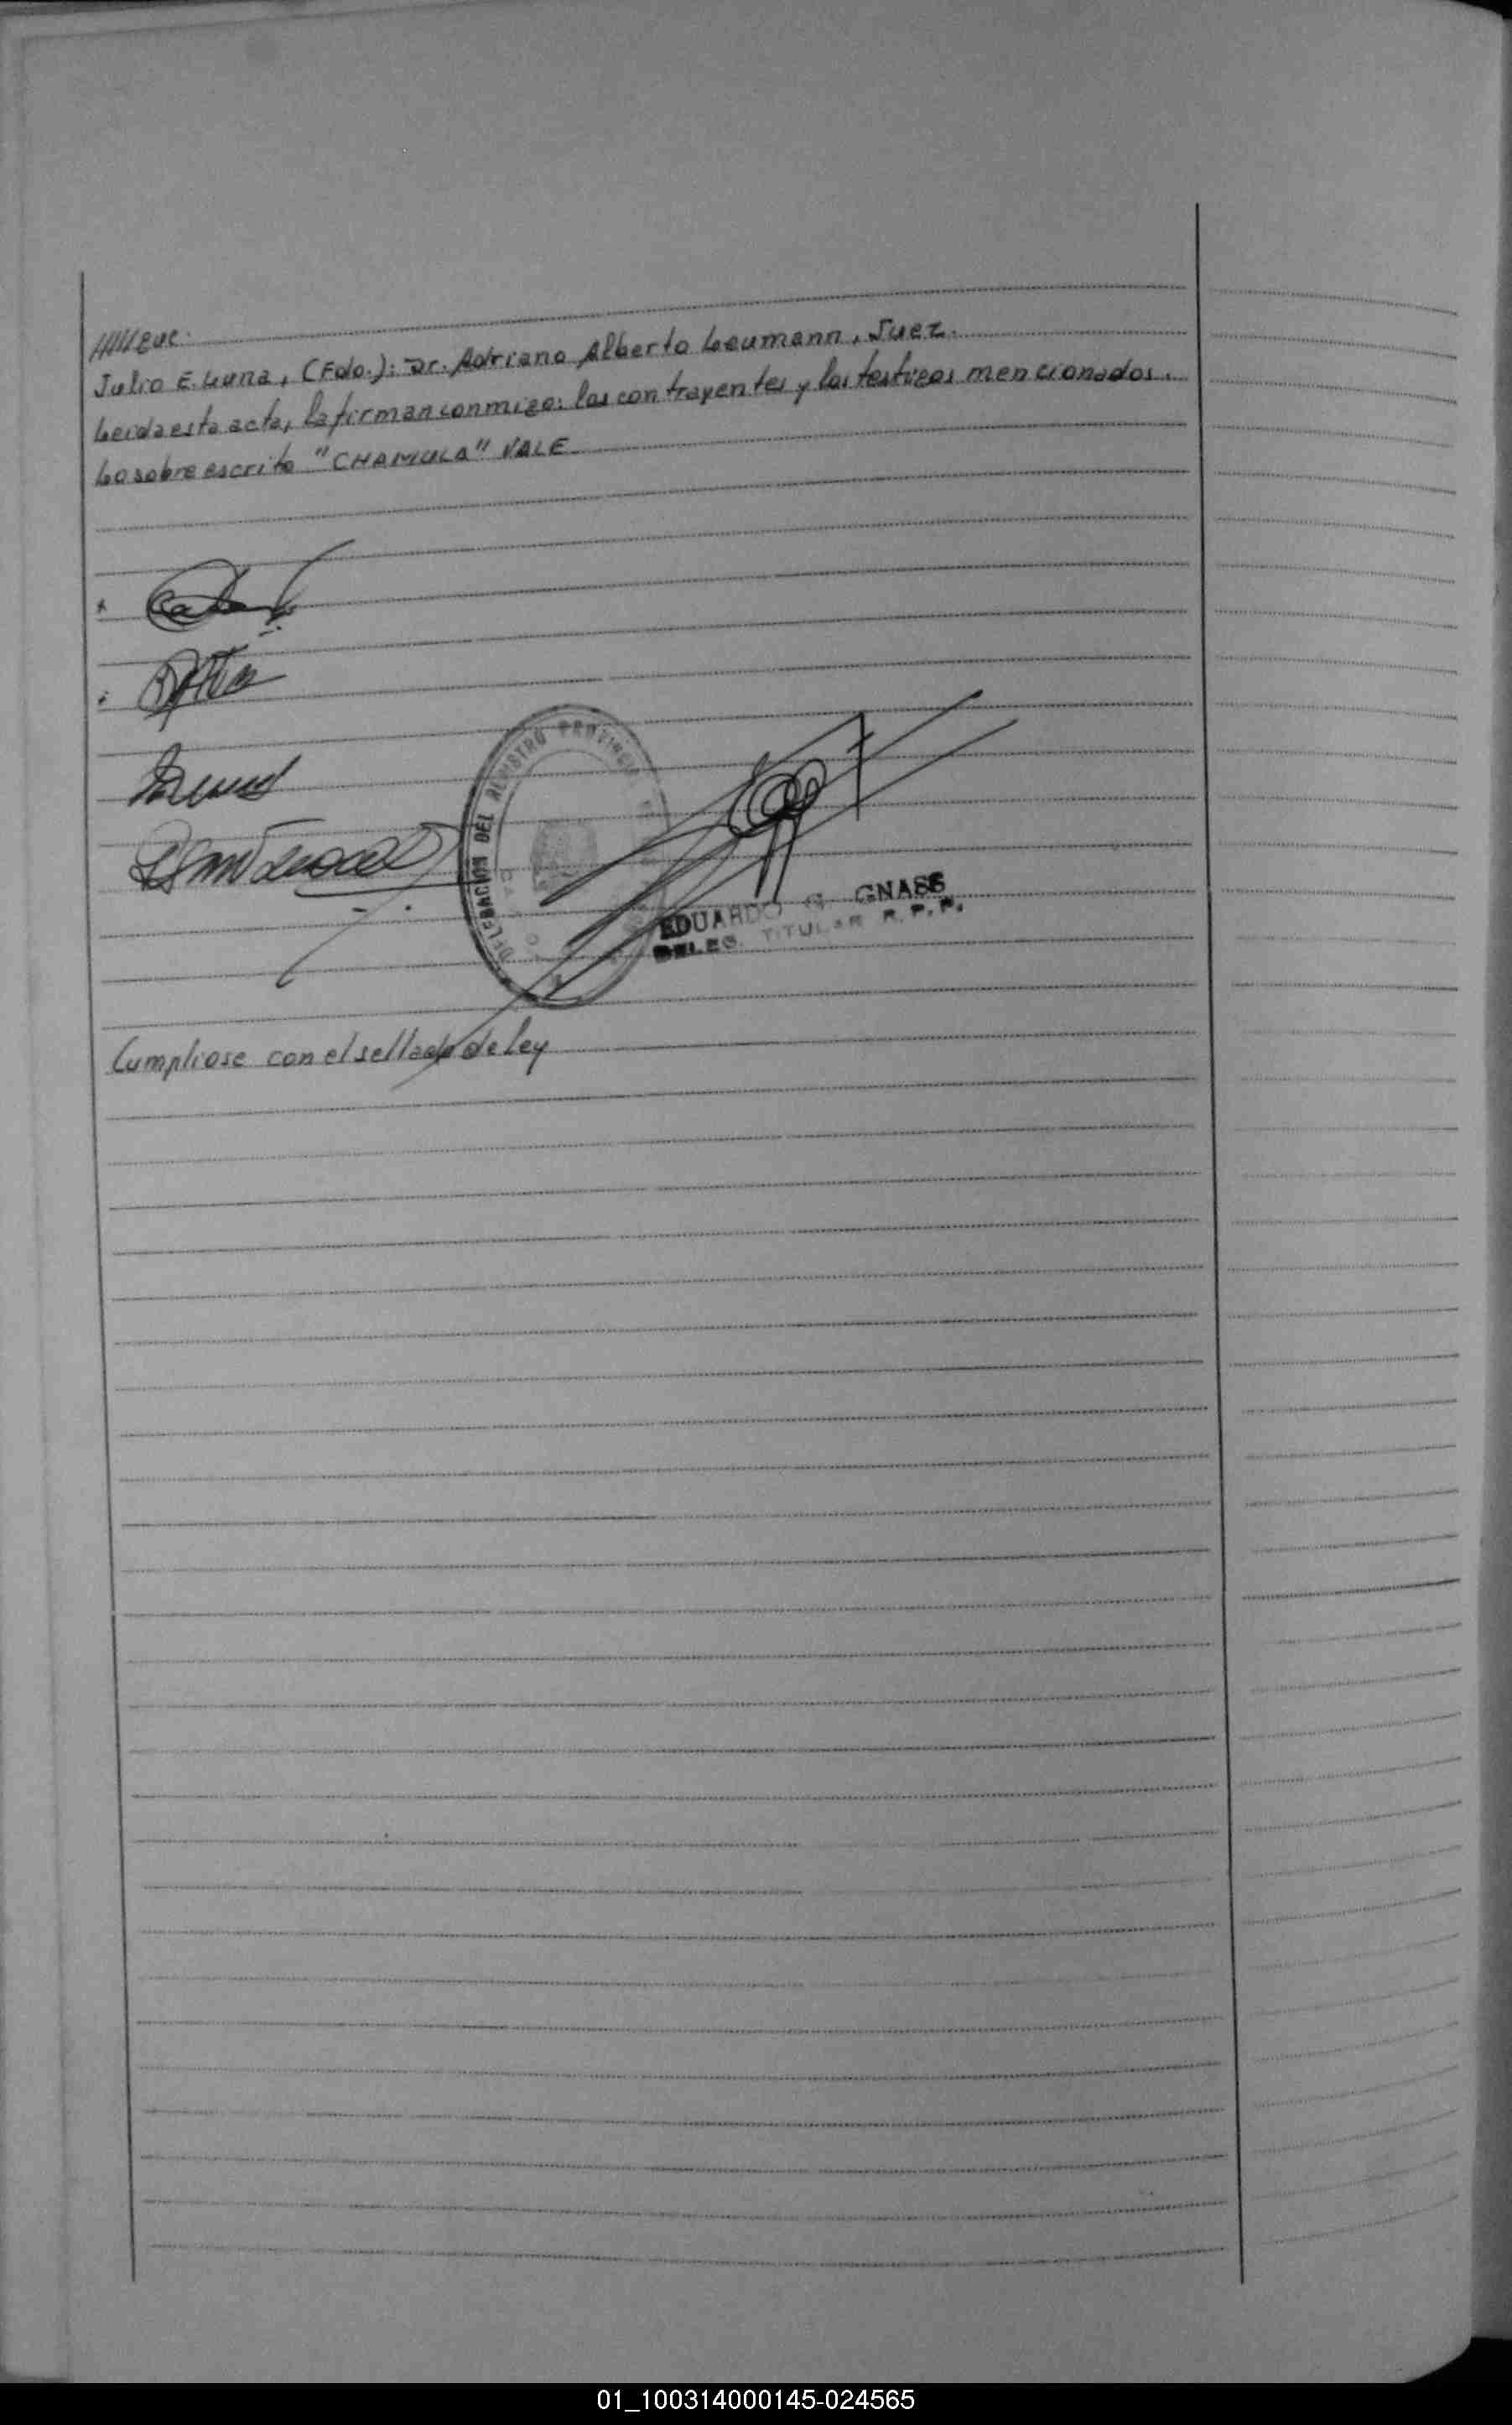 Julio E. Luna, (Fdo.): Dr. Adriano Alberto Leumann, Juez.
Leida esta acta, la firman conmigo: los contrayentes y los testigos mencionados.
Lo sobre escrito "CHAMULA" VALE
DELEGACION DEL REGISTRO PROVINCIAL
EDUARDO G. GNASS
DELEG. TITULAR R.P.P.
Cumpliose con el sellado de ley
01_100314000145-024565